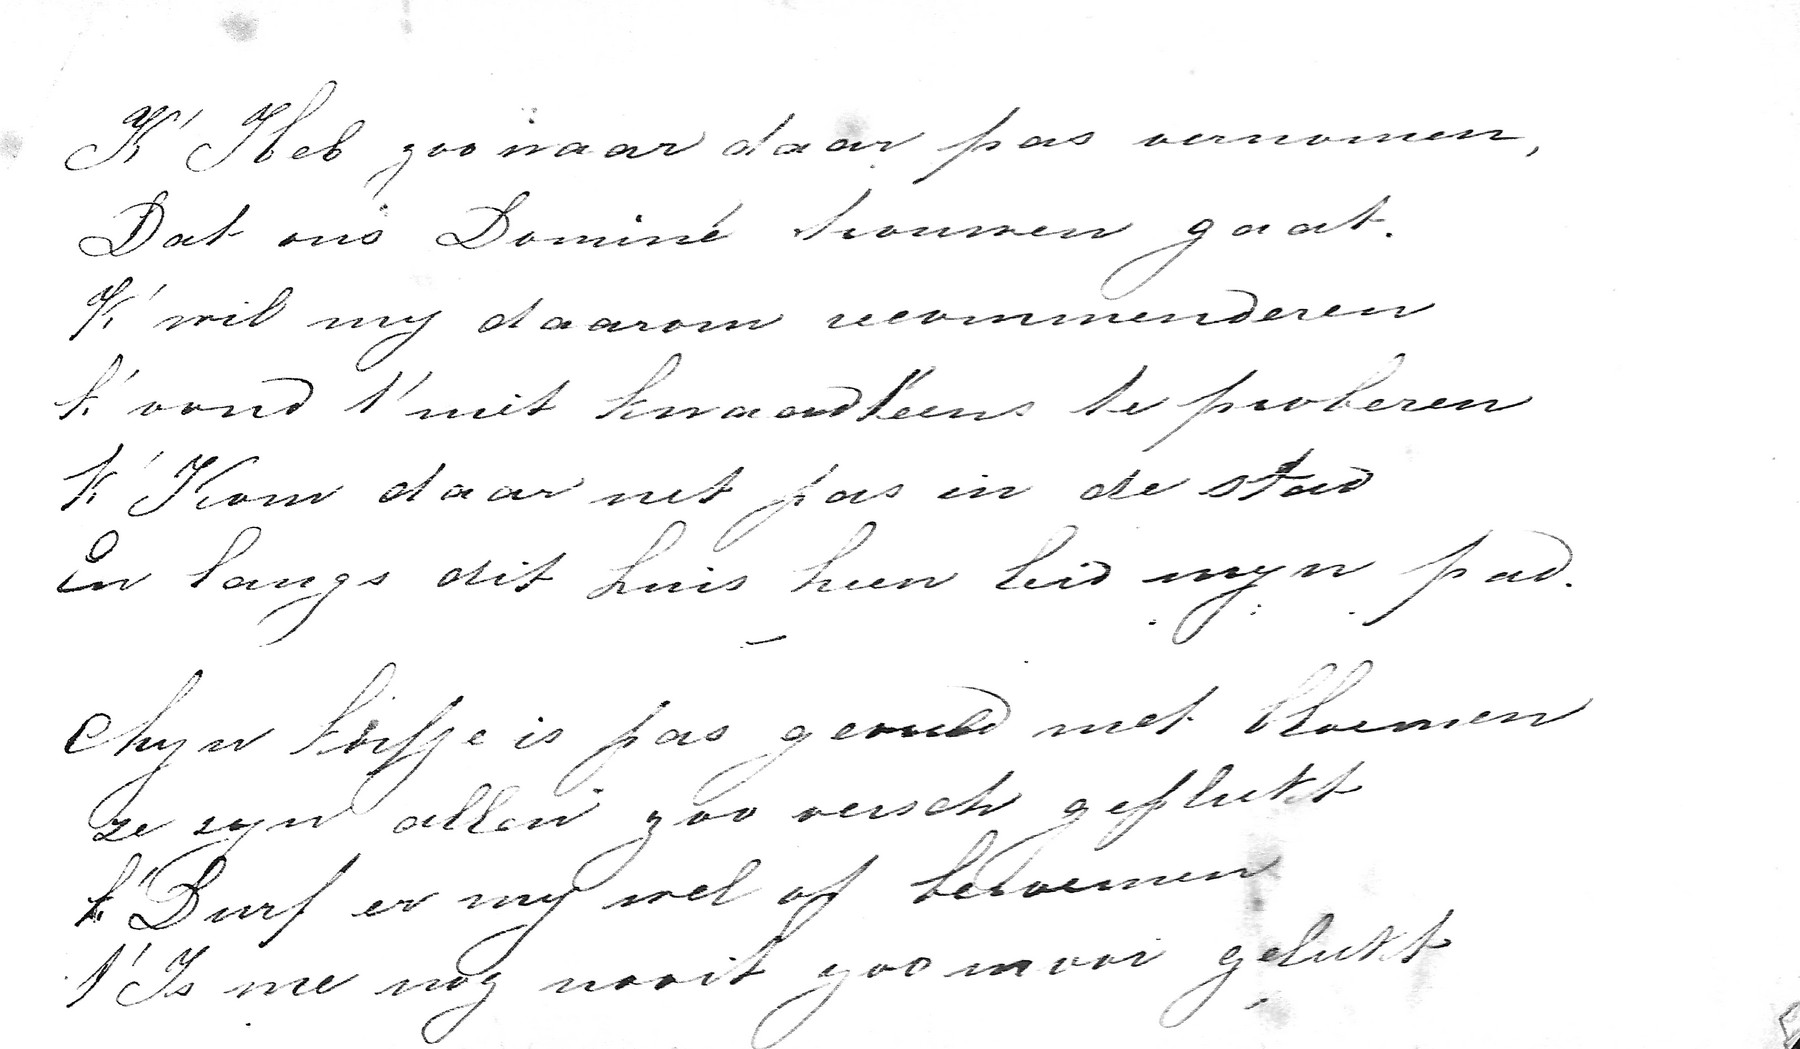 K' Heb zoo waar daar pas vernomen,
Dat ons Dominé trouwen gaat.
K' wil my daarom recommenderen
k' vond t' niet kwaad t' eens te proberen
k' Kom daar net pas in de stad
En langs dit huis heen leid myn pad.
Myn korfje is pas gevuld met bloemen
ze zyn allen zoo versch geplukt
k' Durf er my wel op beroemen
t' Is me nog nooit zoo mooi gelukt